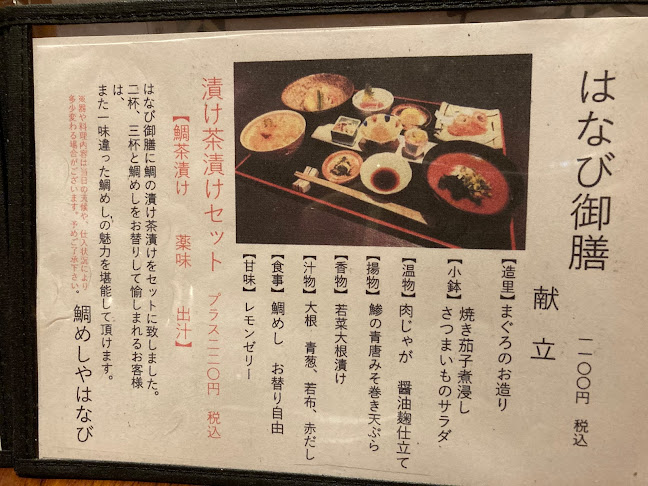 はなび御膳
二一〇〇円 税込
献立
【造里】まぐろのお造り
【小鉢】焼き茄子煮浸し
さつまいものサラダ
【温物】肉じゃが 醤油麹仕立て
【揚物】鯵の青唐みそ巻き天ぷら
【香物】若菜大根漬け
【汁物】大根 青葱、若布、赤だし
【食事】鯛めし お替り自由
【甘味】レモンゼリー
漬け茶漬けセット プラス二二〇円 税込
【鯛茶漬け 薬味 出汁】
はなび御膳に鯛の漬け茶漬けをセットに致しました。
二杯、三杯と鯛めしをお替りして愉しまれるお客様
は、
また一味違った鯛めしの魅力を堪能して頂けます。
※器や料理内容は当日の天候や、仕入状況により
多少変わる場合がございます。予めご了承下さい。
鯛めしやはなび